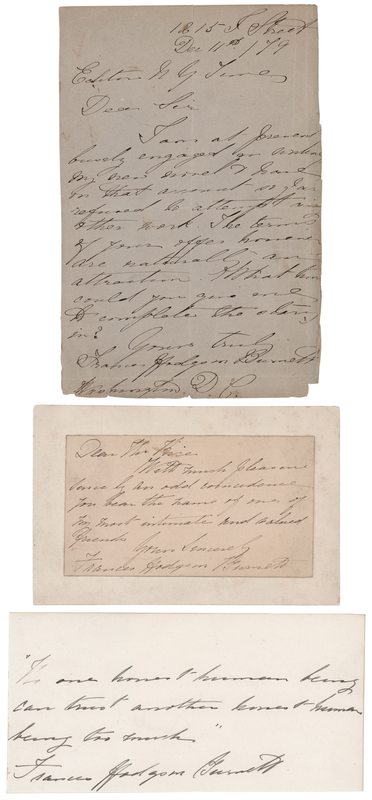 1215 I Street
Dec 11th 179
Editor N Y Times
Dear Sir
I am at present
busily engaged on
my new novel & have
on that account so far
refused to attempt
other work. The terms
of your offer however
are naturally an
attraction. What time
could you give me
to complete the story
in?
Yours truly
Frances Hodgson Burnett
Washington D. C.
Dear Mr
With much pleasure
since by an odd coincidence
you bear the name of one of
my most intimate and valued
friends
Yours Sincerely
Frances Hodgson Burnett
one honest human being
can trust another honest human
being too much"
Frances Hodgson Burnett